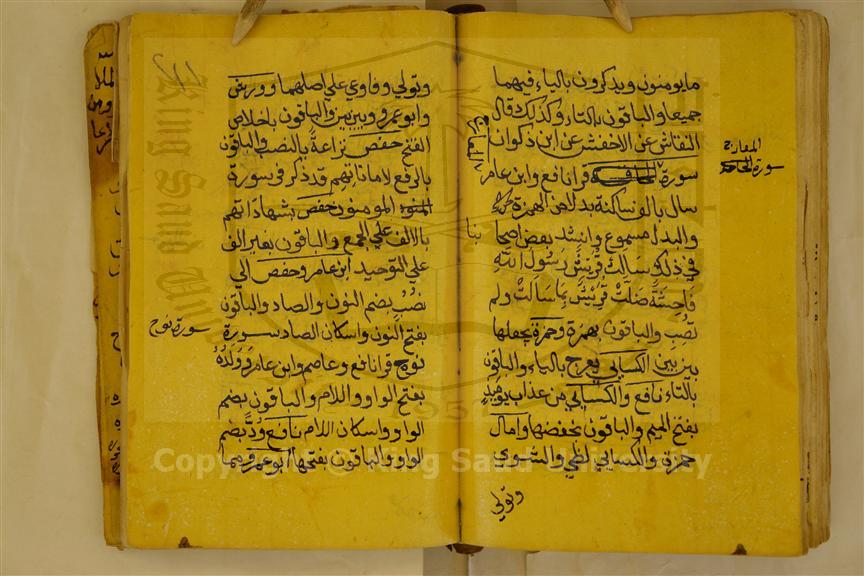 ما يومنون ويذكرون بالياء فيهما
جميعا والباقون بالتاء وكذلك قال
النقاش عن الاخفش عن ابن ذكوان
سورة قرا نافع وابن عامر
سال بالف ساكنة بدلا من الهمزة
والبدل مسموع وانشد بعض اصحابنا
في ذلك سالت قريش رسول الله
فاحشة ضلت قريش بما سالت ولم
تصب والباقون بهمزة وحمزة يجعلها
بين بين الكسايي يعرج بالياء والباقون
بالتاء نافع والكسايي من عذاب يوميذ
بفتح الميم والباقون بخفضها وامال
حمزة والكسايي لظي والشوي
وتولي
المعارج
سورة
وتولي وفاوعي علي اصلهما وورش
وابو عمرو بين بين والباقون باخلاص
الفتح حفص نزاعة بالنصب والباقون
بالرفع لاماناتهم قد ذكر في سورة
المومنون حفص بشهاداتهم
بالالف علي الجمع والباقون بغير الف
علي التوحيد ابن عامر وحفص الي
نصب بضم النون والصاد والباقون
بفتح النون واسكان الصاد سورة
نوح قرا نافع وعاصم وابن عامر وولده
بفتح الواو واللام والباقون بضم
الواو واسكان اللام نافع ودا بضم
الواو والباقون بفتحها ابو عمرو مما
سورة نوح
Copyright © King Saud University
King Saud University
1957